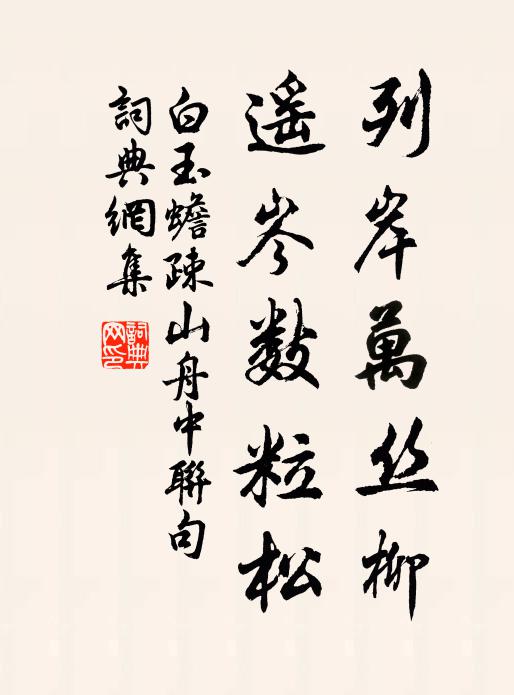 列岸萬丝柳
遥岑数粒松
白玉蟾疎山舟中聯句
詞典網集
詞典网印